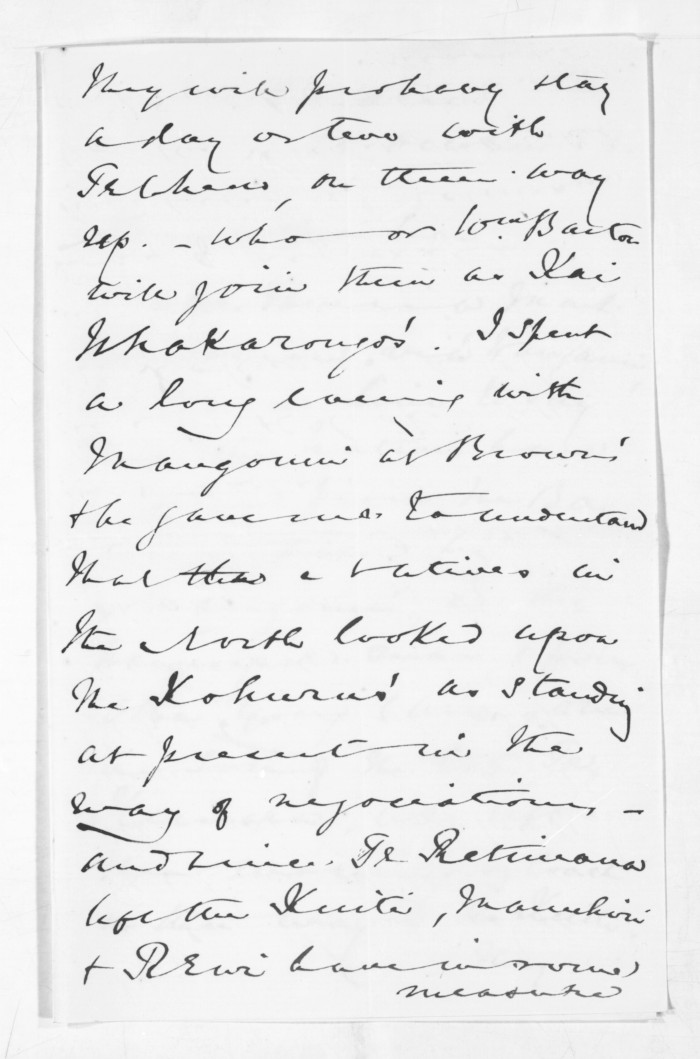 They will probably stay
a day or two with
on their way
up. - who or Wm. Barton
will join them as Kai
Whakarongo's. I spent
a long evening with
at Brown's
& he gave me to understand
that the natives in
the North looked upon
the Kohuru's as standing
at present in the
way of negociations -
and since Te Retimana
left the Kuiti, Manuhiri
& Rewi have in some
measure